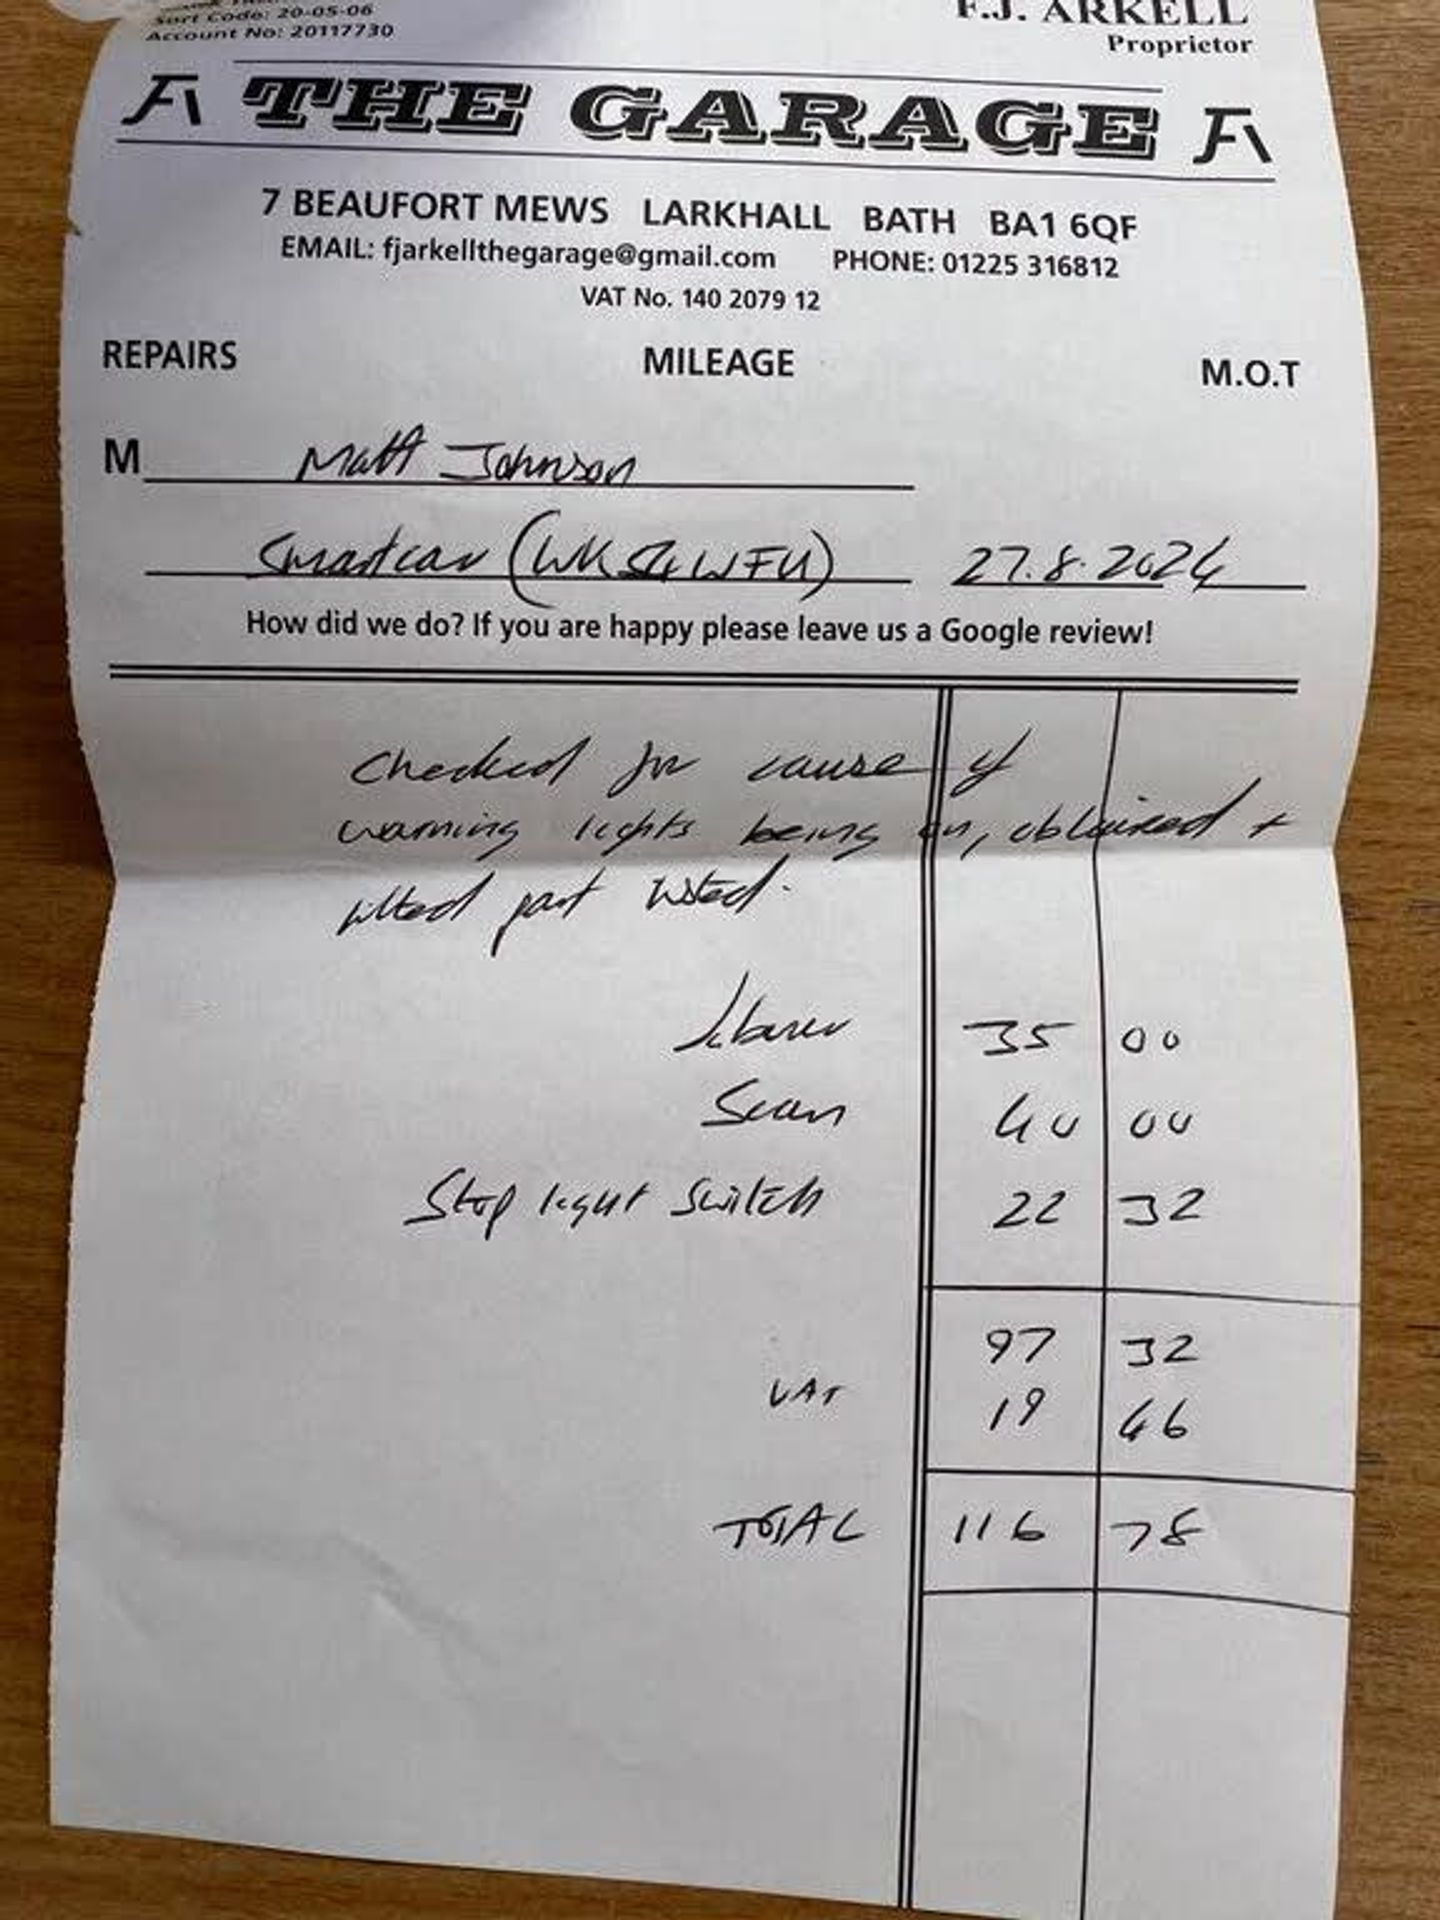 Sort Code: 20-05-06
Account No: 20117730
F.J. ARKELL
Proprietor
FA THE GARAGE FA
7 BEAUFORT MEWS LARKHALL BATH BA1 6QF
EMAIL: fjarkellthegarage@gmail.com PHONE: 01225 316812
VAT No. 140 2079 12
REPAIRS MILEAGE M.O.T
M Matt Johnson
Smartcar (WK54WFU) 27.8.2024
How did we do? If you are happy please leave us a Google review!
Checked for cause of
warning lights being on, obtained +
fitted part listed.
Labour 35 00
Scan 40 00
Stop light switch 22 32
97 32
VAT 19 46
TOTAL 116 78